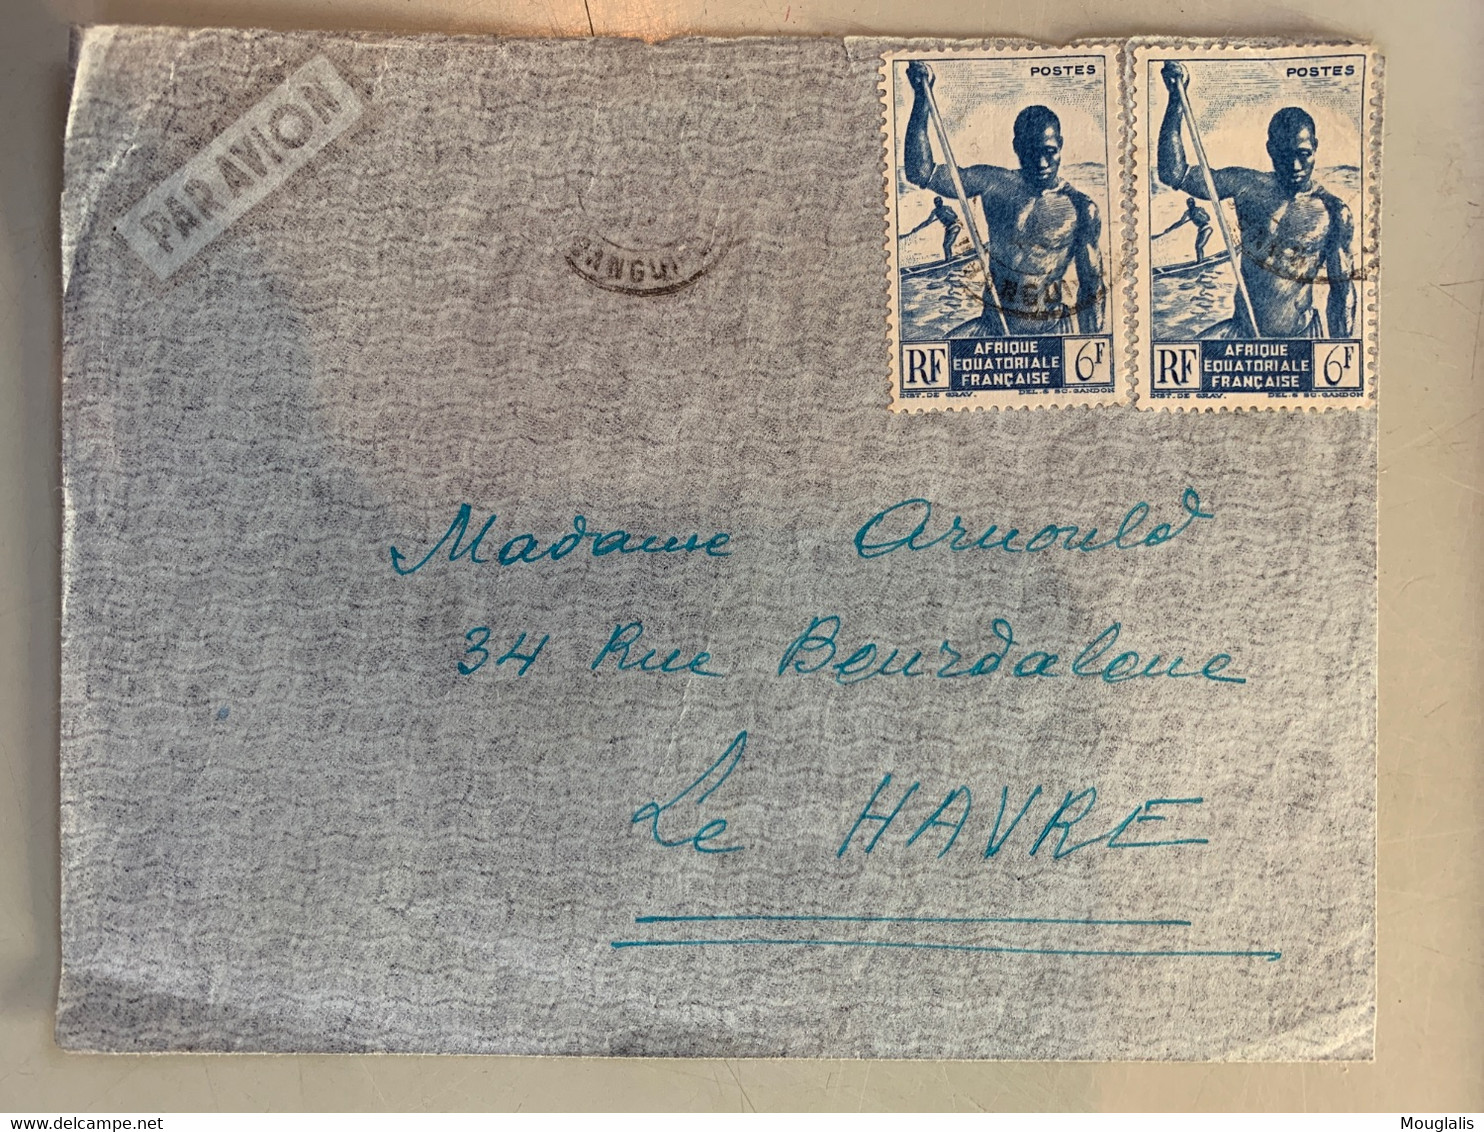 PAR AVION
POSTES
RF
AFRIQUE
EQUATORIALE
FRANÇAISE
6F
INST. DE GRAV.
DEL. & SC. GANDON
POSTES
RF
AFRIQUE
EQUATORIALE
FRANÇAISE
6F
INST. DE GRAV.
DEL. & SC. GANDON
Madame Arnould
34 Rue Bourdaloue
Le HAVRE
Mouglalis